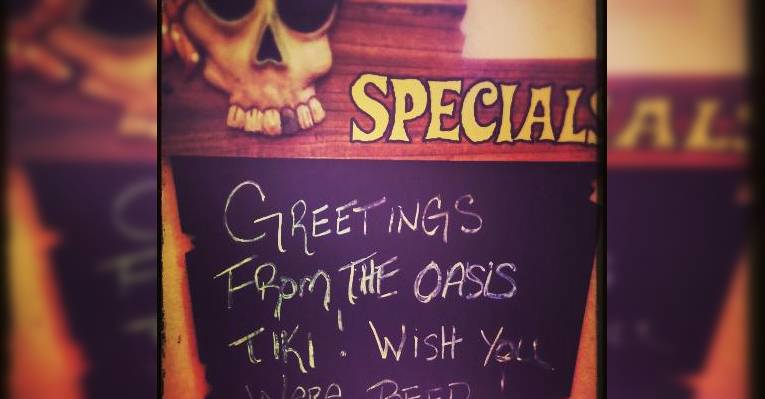 SPECIALS
GREETINGS
FROM THE OASIS
TIKI! WISH YOU
WERE BEER!